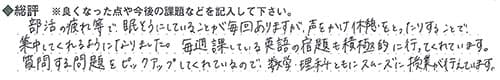 ◆総評 ※良くなった点や今後の課題などを記入して下さい。
部活の疲れ等で、眠そうにしていることが毎回ありますが、声をかけ休憩をとったりすることで、
集中してくれるようになりました。毎週課している英語の宿題も積極的に行ってくれています。
質問する問題をピックアップしてくれているので、数学・理科ともにスムーズに授業が行えています。